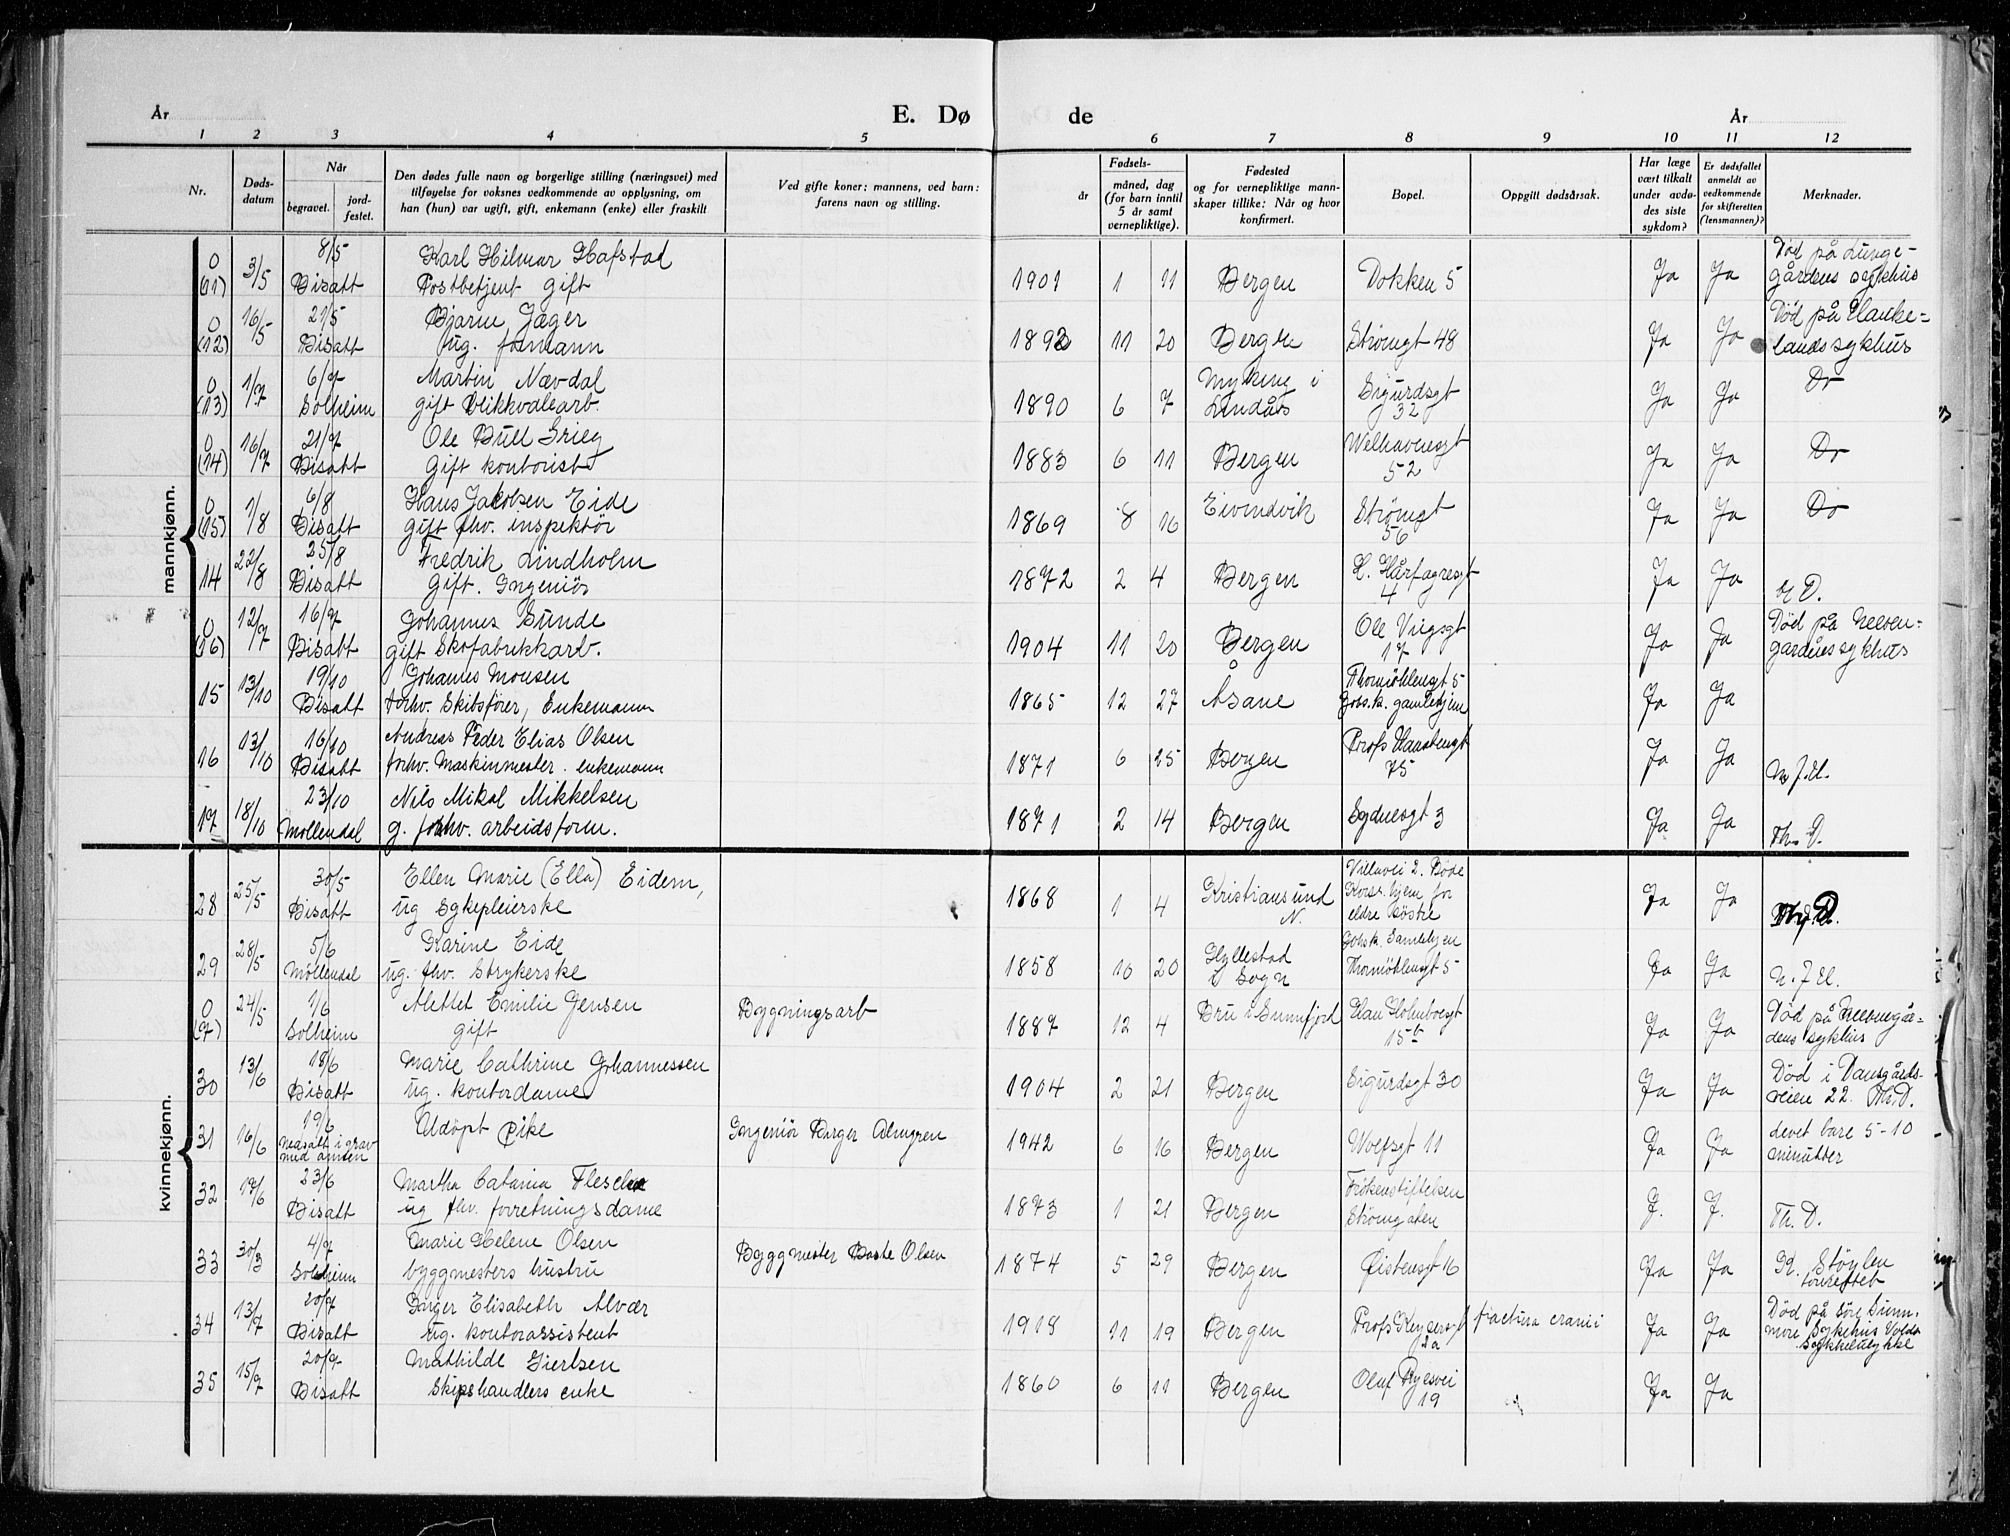 År
E. Dø
de
År
1 2 3 4 5 6 7 8 9 10 11 12
Nr.
Døds-
datum
Når
begravet.
jord-
festet.
Den dødes fulle navn og borgerlige stilling (næringsvei) med
tilføyelse for voksnes vedkommende av opplysning, om
han (hun) var ugift, gift, enkemann (enke) eller fraskilt
Ved gifte koner: mannens, ved barn:
farens navn og stilling.
Fødsels-
år
måned, dag
(for barn inntil
5 år samt
vernepliktige).
Fødested
og for vernepliktige mann-
skaper tillike: Når og hvor
konfirmert.
Bopel.
Oppgitt dødsårsak.
Har læge
vært tilkalt
under avdø-
des siste
sykdom?
Er dødsfallet
anmeldt av
vedkommende
for skifteretten
(lensmannen)?
Merknader.
mannkjønn.
0 8/5 Karl Hilmar Hafstad Død på Lunge-
(11) 3/5 Bisatt Postbetjent gift 1901 1 11 Bergen Dokken 5 Ja Ja gårdens sykehus
0 16/5 21/5 Bjarne Jæger Død på Hauke-
(12) Bisatt ug. formann 1892 11 20 Bergen Strømgt 48 Ja Ja landssykhus
0 1/7 6/7 Martin Nævdal Myking i Sigurdsgt Do
(13) Solheim gift blikkvalearb. 1890 6 7 Lindås 32 Ja Ja
0 16/7 21/7 Ole Bull Grieg Welhavensgt
(14) Bisatt Gift kontorist 1883 6 11 Bergen 52 Ja Ja Do
0 1/8 6/8 Hans Jacobsen Eide Eivindvik Strømgt Do
(15) Bisatt gift fhv. inspektör 1869 8 16 56 Ja Ja
22/8 25/8 Fredrik Lindholm H. Hårfagresgt
14 Bisatt Gift. Ingeniör 1872 2 4 Bergen 4 Ja Ja D.
0 12/7 16/7 Johannes Sunde Ole Vigsgt Død på Neven-
(16) Bisatt gift Skofabrikkarb. 1904 11 20 Bergen 17 Ja Ja gårdens sykhus
13/10 19/10 Johannes Monsen Thormöhlensgt 5
15 Bisatt forhv. Skibsförer, Enkemann 1865 12 27 Åsane Johs.k. gamlehjem Ja Ja
13/10 16/10 Andreas Peder Elias Olsen Profs Hansteensgt
16 Bisatt forhv. Maskinmester. enkemann 1871 6 25 Bergen 75 Ja Ja
18/10 23/10 Nils Mikal Mikkelsen
17 Møllendal g. forhv. arbeidsform. 1871 2 14 Bergen Sydnesgt 3 Ja Ja Th. D.
kvinnekjønn.
25/5 30/5 Ellen Marie (Ella) Eidem, Villavei 2. Røde
28 Bisatt ug Sykepleierske 1868 1 4 Kristiansund N. Kors. hjem for Ja Ja
eldre søstre
28/5 5/6 Karine Eide Hyllestad Johsk. Gamlehjem
29 Møllendal ug. fhv. Strykerske 1858 10 20 i Sogn Thormöhlensgt 5 Ja Ja
0 24/5 1/6 Alettet Emilie Jensen Bygningsarb Bru i Sunnfjord Død på Nevengår-
(7) Solheim gift 1887 12 4 15b Ja Ja dens sykhus
13/6 18/6 Marie Cathrine Johannessen Død i Damsgårds-
30 Bisatt ug. kontordame 1904 2 21 Bergen Sigurdsgt 30 Ja Ja veien 22. Th. D.
16/6 19/6 Udöpt pike Ingeniör Birger Almgren levet bare 5-10
31 Nedsatt i grav 1942 6 16 Bergen Wolfsgt 11 Ja Ja minutter
17/6 23/6 Martha Catarina Flesche Frökenstiftelsen
32 Bisatt ug fhv. forretningsdame 1873 1 21 Bergen Strömgaten J. J. Th. D.
30/3 4/7 Marie Helene Olsen Byggmester Olsen
33 Solheim byggmesters hustru 1874 5 29 Bergen Øistensgt 16 Ja Ja K. Støylen
forrettet
13/7 20/7 Inger Elisabeth Alvær Profs Keysersgt fractura cranii Død på Söre Sunn-
34 Bisatt ug. kontorassistent 1918 11 19 Bergen 12a Ja Ja möre Sykehus Volda
Sykkelulykke
15/7 20/7 Mathilde Giertsen Olaf Ryesvei
35 Bisatt Skipshandlers enke 1860 6 11 Bergen 19 Ja Ja